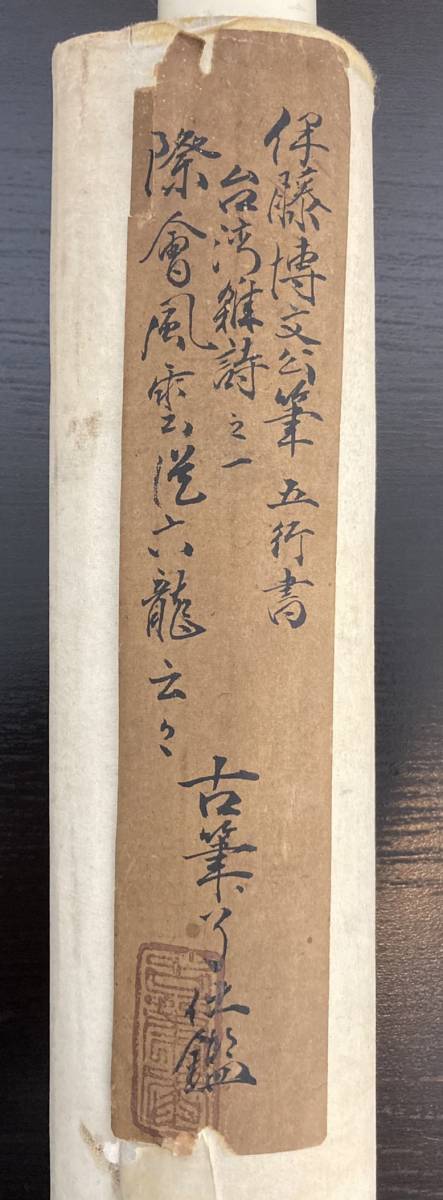 伊藤博文公筆 五行書
台湾雑詩之一
際會風雲從六龍云々
古筆了仕鑑